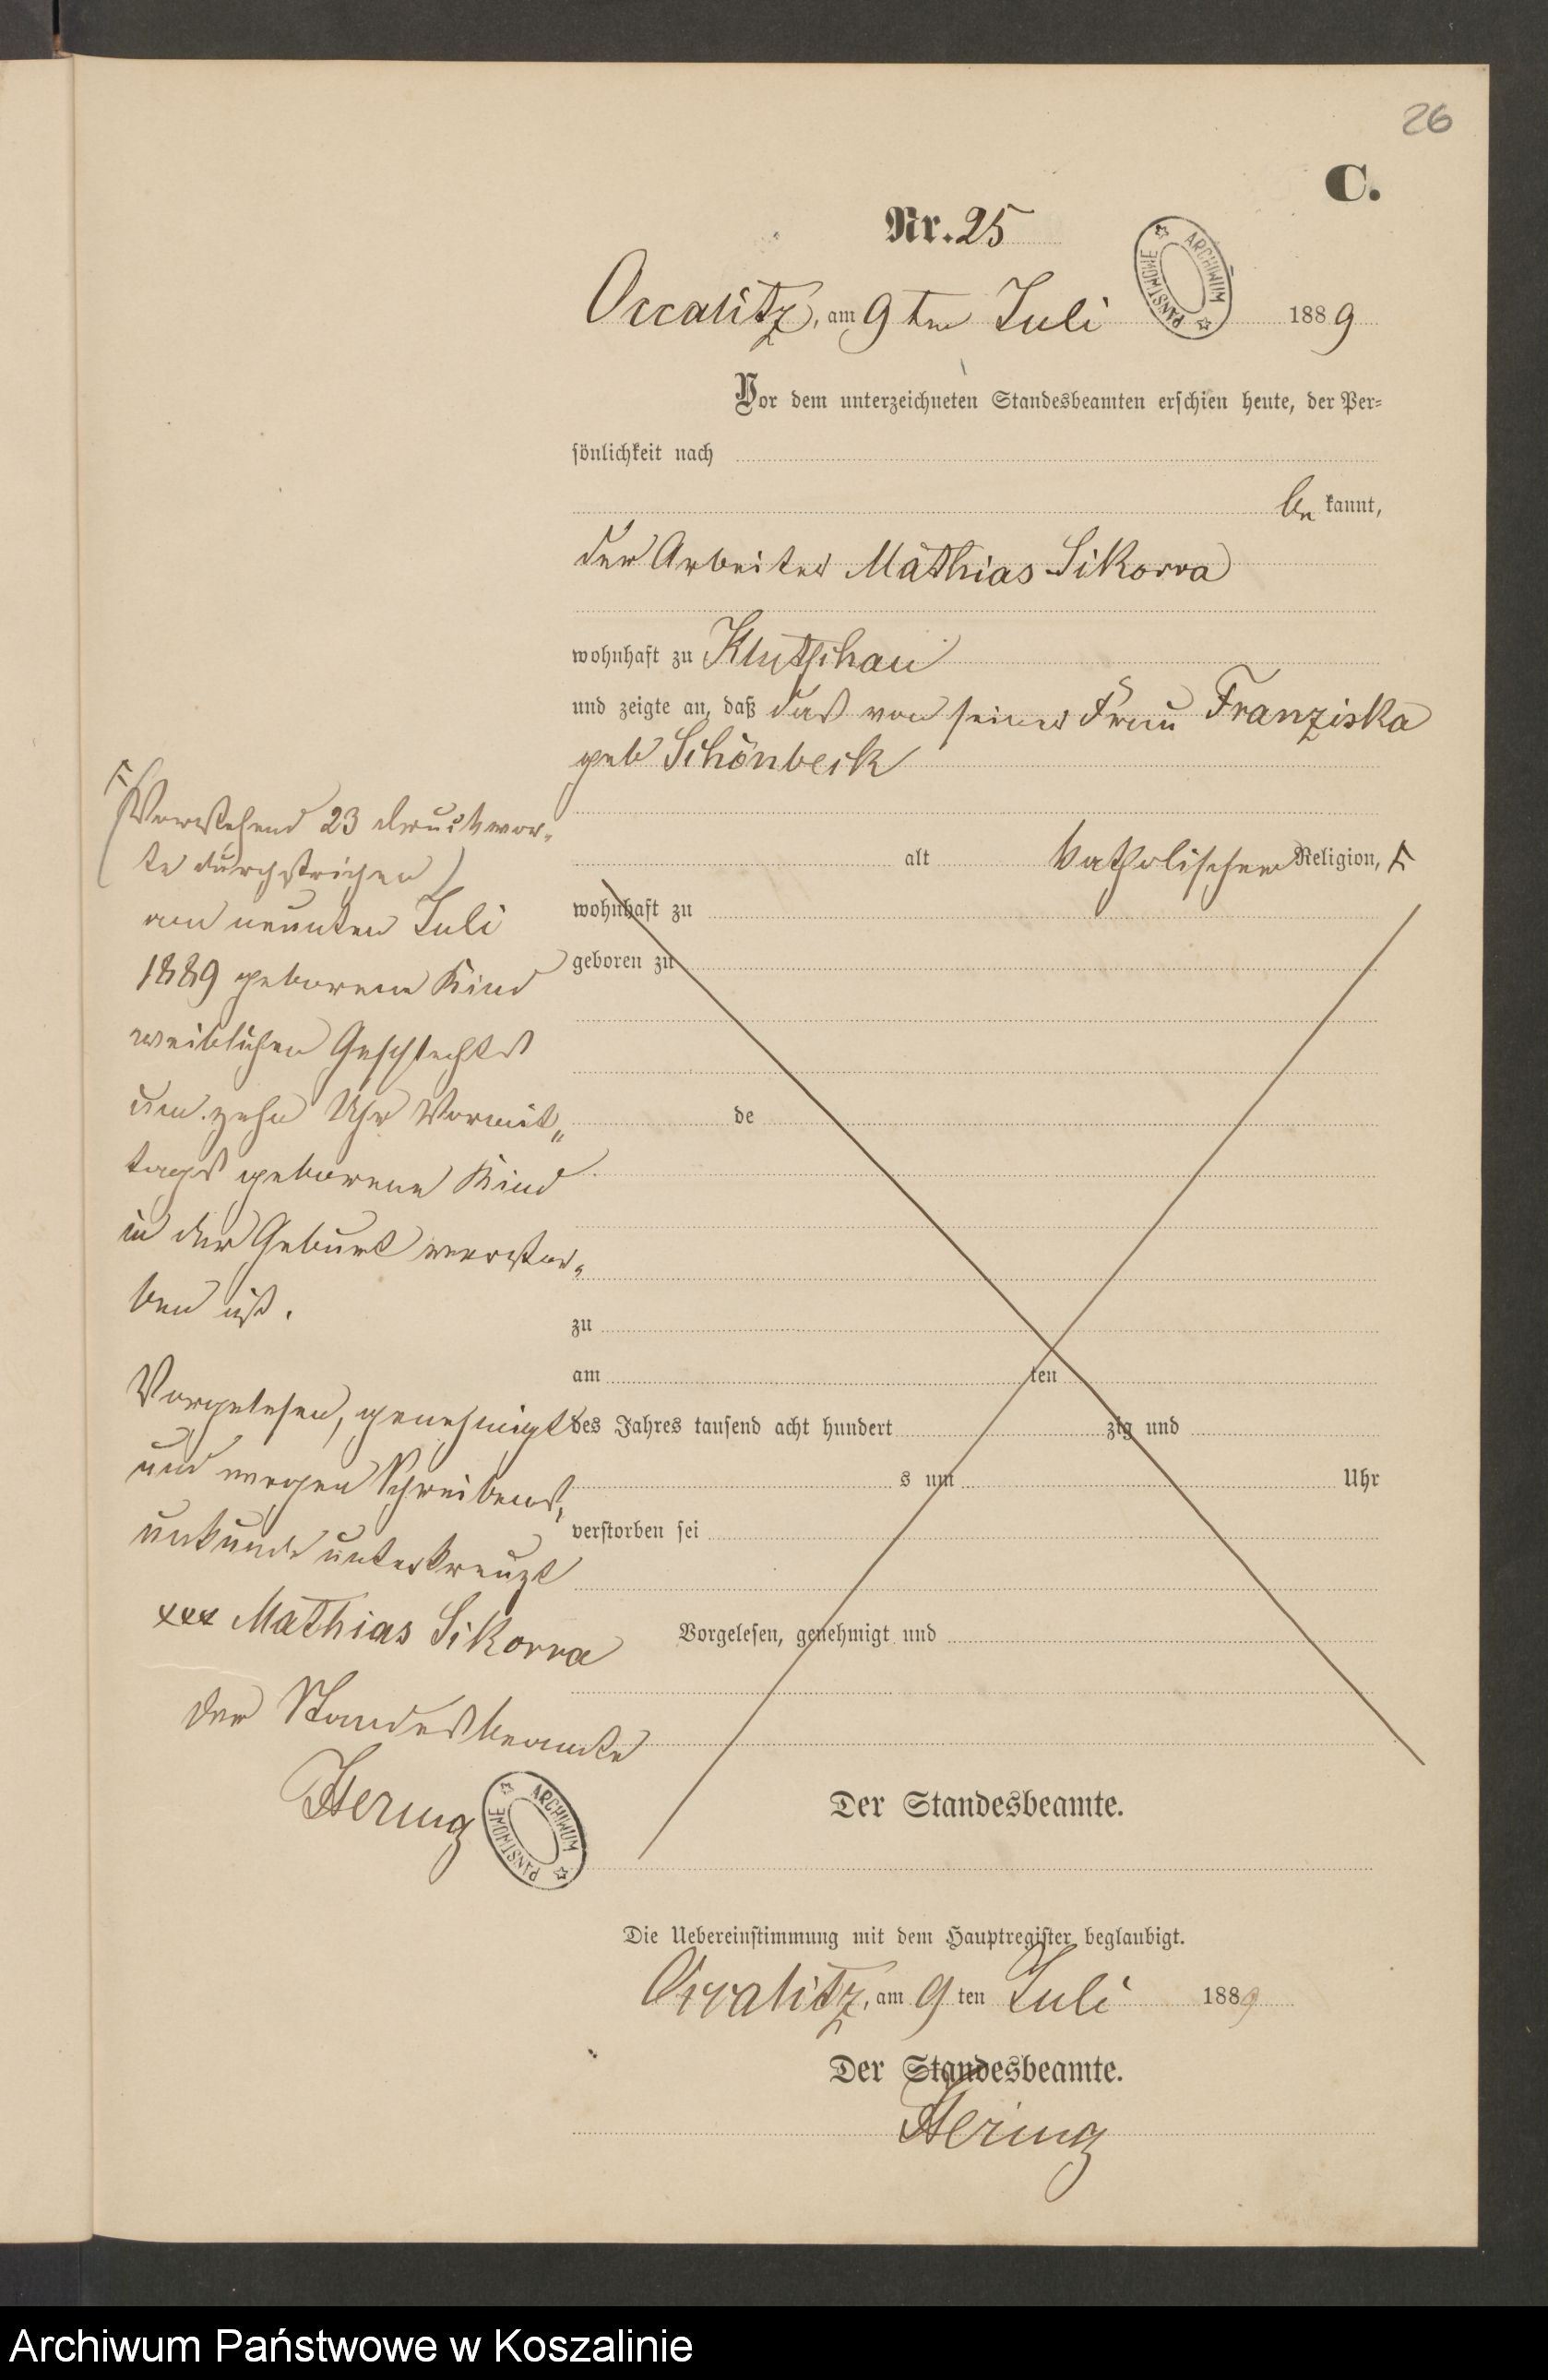 26
C.
Nr. 25
Occalitz, am 9ten Juli 1889
ARCHIWUM PAŃSTWOWE
Vor dem unterzeichneten Standesbeamten erschien heute, der Per-
sönlichkeit nach
be kannt,
der Arbeiter Mathias Sikorra
wohnhaft zu Klutschau
und zeigte an, daß das von seiner Frau Franziska
geb Schönbeck
alt katholischer Religion, F
wohnhaft zu
geboren zu
de
zu
am ten
des Jahres tausend acht hundert zig und
s um Uhr
verstorben sei
Vorgelesen, genehmigt und
Der Standesbeamte.
F
(Vorstehend 23 Druckwor-
te durchstrichen)
am neunten Juli
1889 geborene Kind
weiblichen Geschlechts
um zehn Uhr Vormit-
tags geborene Kind
in der Geburt verstor-
ben ist.
Vorgelesen, genehmigt
und wegen Schreibens-
unkunde unterkreuzt
xxx Mathias Sikorra
Der Standesbeamte
Hering
ARCHIWUM PAŃSTWOWE
Die Uebereinstimmung mit dem Hauptregister beglaubigt.
Occalitz, am 9 ten Juli 1889
Der Standesbeamte.
Hering
Archiwum Państwowe w Koszalinie